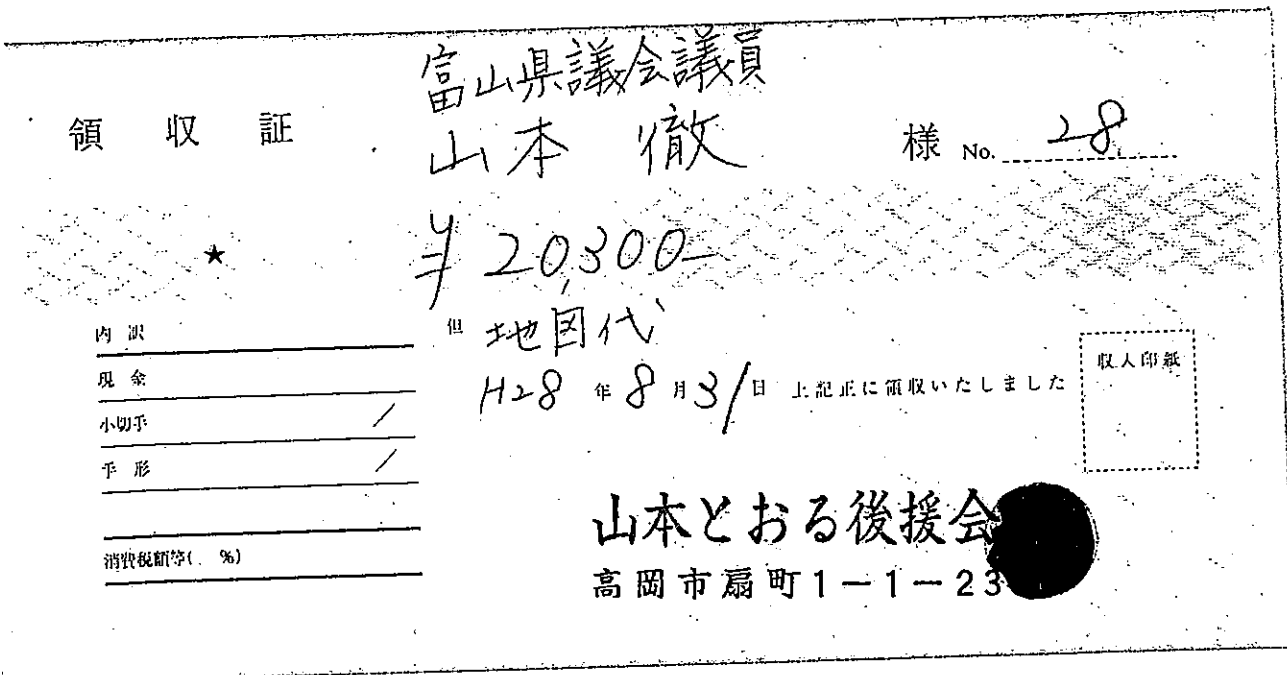 領収証 富山県議会議員 山本 徹 様 No. 28
★ ¥20,300-
但 地図代
H28年8月31日 上記正に領収いたしました
収入印紙
内訳
現金
小切手 /
手形 /
消費税額等( %)
山本とおる後援会
高岡市扇町1-1-23